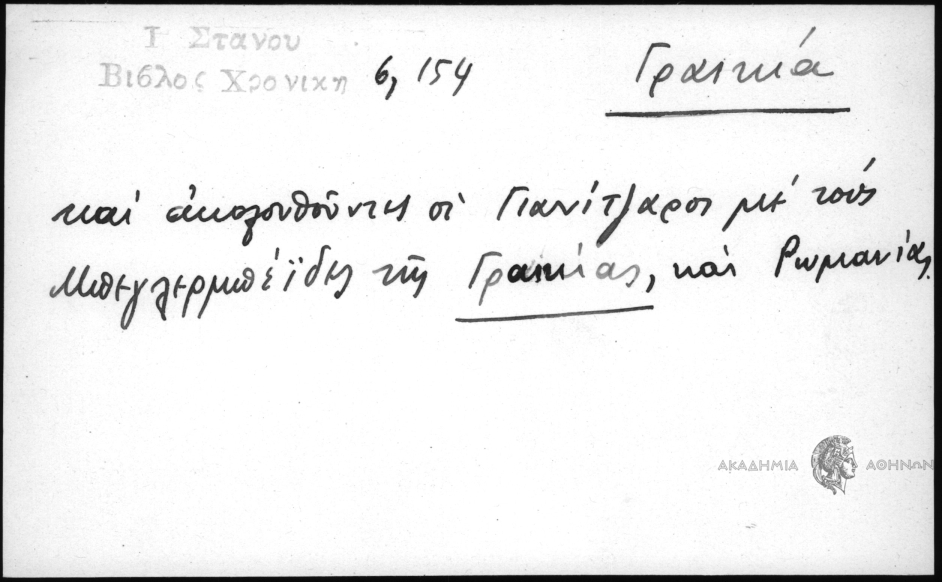 Ι Στανου
Βιβλος Χρονικη 6, 154
Γραικιά
καί ἀκολουθοῦντες οἱ Γιανίτζαροι μέ τούς
Μπεγλερμπέϊδες τῆς Γραικίας, καί Ρωμανίας.
ΑΚΑΔΗΜΙΑ ΑΘΗΝΩΝ